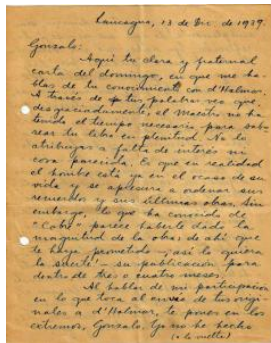 Rancagua, 13 de Dic. de 1939.
Gonzalo:
Aquí tu clara y fraternal
carta del domingo, en que me ha-
blas de tu conocimiento con d'Halmar.
A través de tus palabras veo que,
desgraciadamente, el Maestro no ha
tenido el tiempo necesario para sabo-
rear tu libro en plenitud. No lo
atribuyas a falta de interés ni
cosa parecida. Es que en realidad
el hombre está ya en el ocaso de su
vida y se apresura a ordenar sus
recuerdos y sus últimas obras. Sin
embargo, lo que ha conocido de
parece haberle dado la
magnitud de la obra; de ahí que
te haya prometido —¡así lo quiera
la suerte!— su publicación para
dentro de tres o cuatro meses.
Al hablar de mi participación
en lo que toca al envío de tus origi-
nales a d'Halmar, te pones en los
extremos, Gonzalo. Yo no he hecho
(a la vuelta)